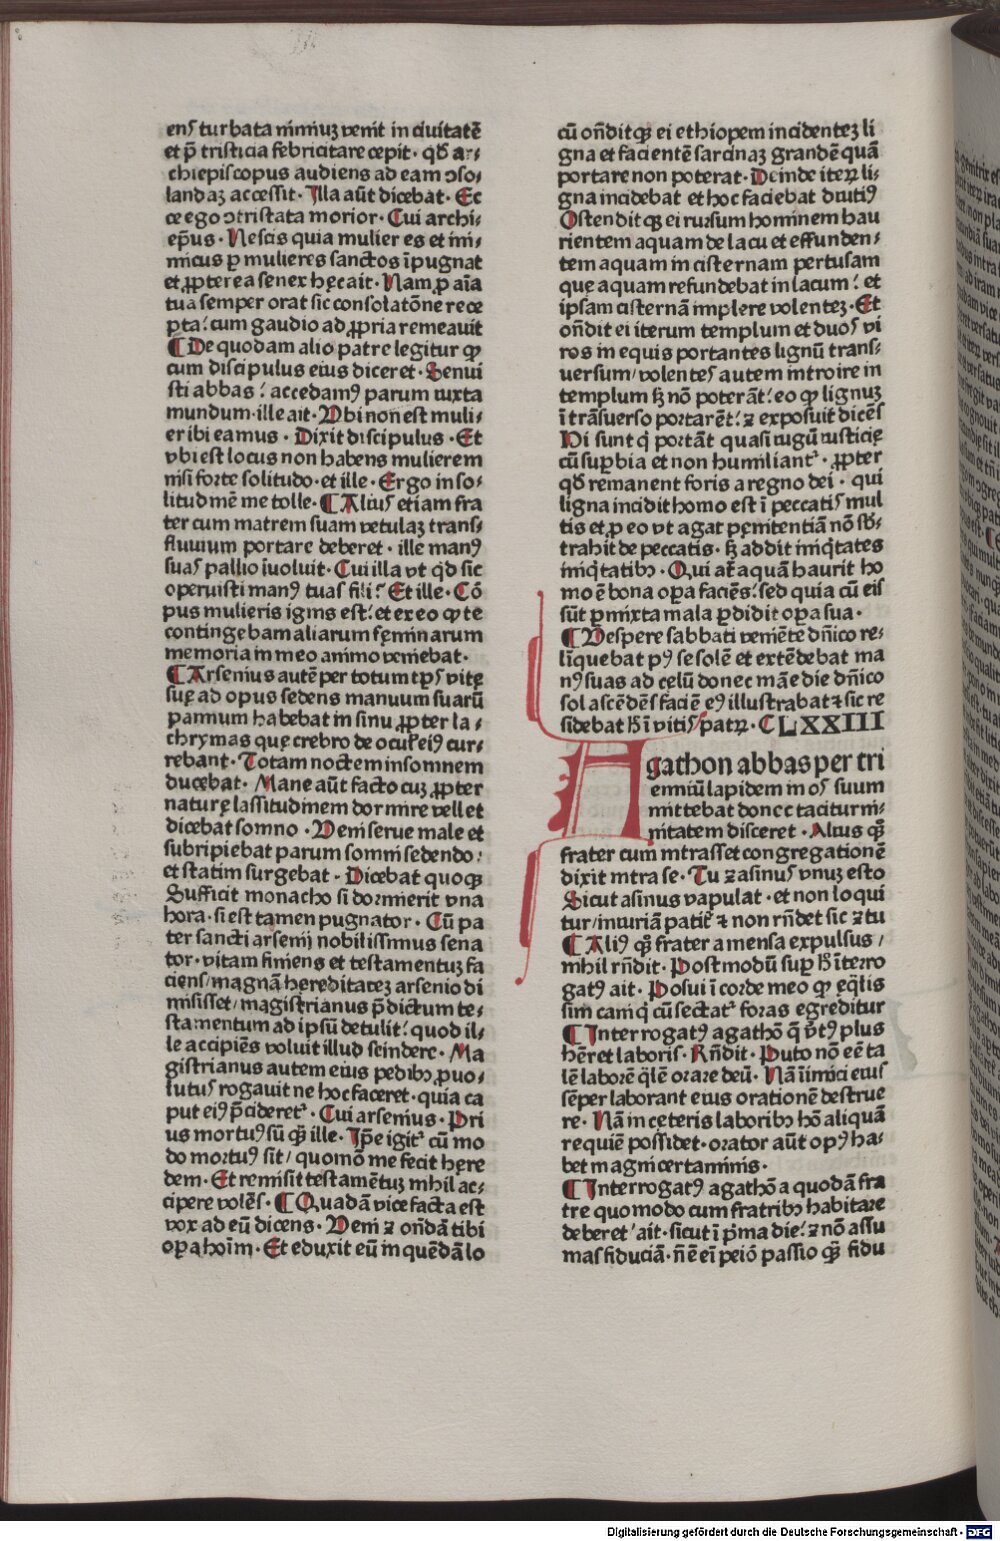 ens turbata nimiuz venit in ciuitatē
et p̄ tristicia febricitare cepit · qď ar⸗
chiepiscopus audiens ad eam ꝯso⸗
landaz accessit · Illa aūt dicebat · Ec
ce ego ꝯtristata morior · Cui archi⸗
ep̄us · Nescis quia mulier es et ini⸗
micus ꝑ mulieres sanctos īpugnat
et ꝓpterea senex hęc ait · Nam ꝓ aīa
tua semper orat sic consolatōne rece
pta: cum gaudio ad ꝓpria remeauit
¶ De quodam alio patre legitur ꝙ
cum discipulus eius diceret · Senui
sti abbas: accedamꝰ parum iuxta
mundum · ille ait · Vbi non est muli⸗
er ibi eamus · Dixit discipulus · Et
vbi est locus non habens mulierem
nisi forte solitudo · et ille · Ergo in so⸗
litudinē me tolle · ¶ Alius etiam fra
ter cum matrem suam vetulaz trans⸗
fluuium portare deberet · ille manꝰ
suas pallio īuoluit · Cui illa vt qď sic
operuisti manꝰ tuas fili? Et ille · Cō
pus mulieris ignis est: et ex eo ꝙ te
contingebam aliarum fęminarum
memoria in meo animo veniebat ·
¶ Arsenius autē per totum tp̄s vitę
suę ad opus sedens manuum suarū
pannum habebat in sinu ꝓpter la⸗
chrymas quę crebro de ocuł eiꝰ cur⸗
rebant · Totam noctem insomnem
ducebat · Mane aūt facto cuz ꝓpter
naturę lassitudinem dormire vellet
dicebat somno · Veni serue male et
subripiebat parum somni sedendo:
et statim surgebat · Dicebat quoqꝫ
Sufficit monacho si dormierit vna
hora · si est tamen pugnator · Cū pa
ter sancti arsenij nobilissimus sena
tor · vitam finiens et testamentuz fa
ciens/ magnā hereditatez arsenio di
misisset/ magistrianus p̄dictum te⸗
stamentum ad ipsū detulit: quod il⸗
le accipiēs voluit illud scindere · Ma
gistrianus autem eius pedibꝫ ꝓuo⸗
lutus rogauit ne hoc faceret · quia ca
put eiꝰ p̄cideretᷣ · Cui arsenius · Pri
us mortuꝰ sū qꝫ ille · Ip̄e igitᷣ cū mo
do mortuꝰ sit/ quomō me fecit hęre
dem · Et remisit testamētuz nihil ac⸗
cipere volēs · ¶ Quadā vice facta est
vox ad eū dicens · Veni ⁊ oñdā tibi
oꝑa hoīm · Et eduxit eū in quēdā lo
cū oñditqꝫ ei ethiopem incidentez li
gna et facientē sarcinaz grandē quā
portare non poterat · Deinde iteꝝ li⸗
gna incidebat et hoc faciebat diutiꝰ
Ostenditqꝫ ei rursum hominem hau
rientem aquam de lacu et effunden⸗
tem aquam in cisternam pertusam
quę aquam refundebat in lacum: et
ipsam cisternā implere volentez · Et
oñdit ei iterum templum et duos vi
ros in equis portantes lignū trans⸗
uersum/ volentes autem introire in
templum sꝫ nō poterāt: eo ꝙ lignuz
ī trāsuerso portarēt: ⁊ exposuit dicēs
Hi sunt q̇ portāt quasi iugū iusticię
cū suꝑbia et non humiliantᷣ · ꝓpter
qď remanent foris a regno dei · qui
ligna incidit homo est ī peccatis mul
tis et ꝓ eo vt agat pęnitentiā nō sb̄⸗
trahit de peccatis · sꝫ addit iniq̇tates
iniq̇tatibꝫ · Qui aūt aquā haurit ho
mo ē bona oꝑa faciēs: sed quia cū eis
sūt ꝑmixta mala ꝑdidit oꝑa sua ·
¶ Vespere sabbati veniēte dñico re⸗
līquebat pꝰ se solē et extēdebat ma
nꝰ suas ad celū donec māe die dñico
sol ascēdēs faciē eꝰ illustrabat ⁊ sic re
sidebat ħ ī vitis patꝝ · CLXXIII
Agathon abbas per tri
enniū lapidem in os suum
mittebat donec taciturni⸗
nitatem disceret · Alius qꝫ
frater cum intrasset congregationē
dixit intra se · Tu ⁊ asinus vnuz esto
Sicut asinus vapulat · et non loqui
tur/ iniuriā patitᷣ ⁊ non rñdet sic ⁊ tu
¶ Aliꝰ qꝫ frater a mensa expulsus/
nihil rñdit · Postmodū suꝑ ħ īterro
gatꝰ ait · Posui ī corde meo ꝙ eq̄lis
sim cani q̇ cū sectatᷣ foras egreditur
¶ Interrogatꝰ agathō q̄ v̄tꝰ plus
hēret laboris · Rñdit · Puto nō eē ta
lē laborē q̄lē orare deū · Nā īimici eius
sēper laborant eius orationē destrue
re · Nā in ceteris laboribꝫ hō aliquā
requiē possidet · orator aūt opꝰ ha⸗
bet magni certaminis ·
¶ Interrogatꝰ agathō a quodā fra
tre quomodo cum fratribꝫ habitare
deberet/ ait · sicut ī pͥma die: ⁊ nō assu
mas fiduciā · ñ ē eī peiō passio qꝫ fidu
Digitalisierung gefördert durch die Deutsche Forschungsgemeinschaft - DFG